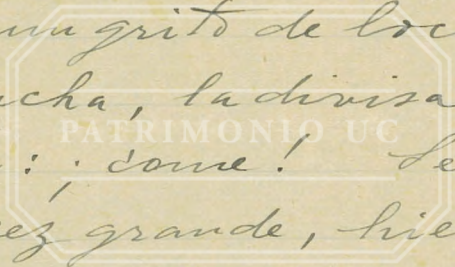 un grito de loc
cha, la divisa
PATRIMONIO UC
: ¡come! Le
ez grande, hie